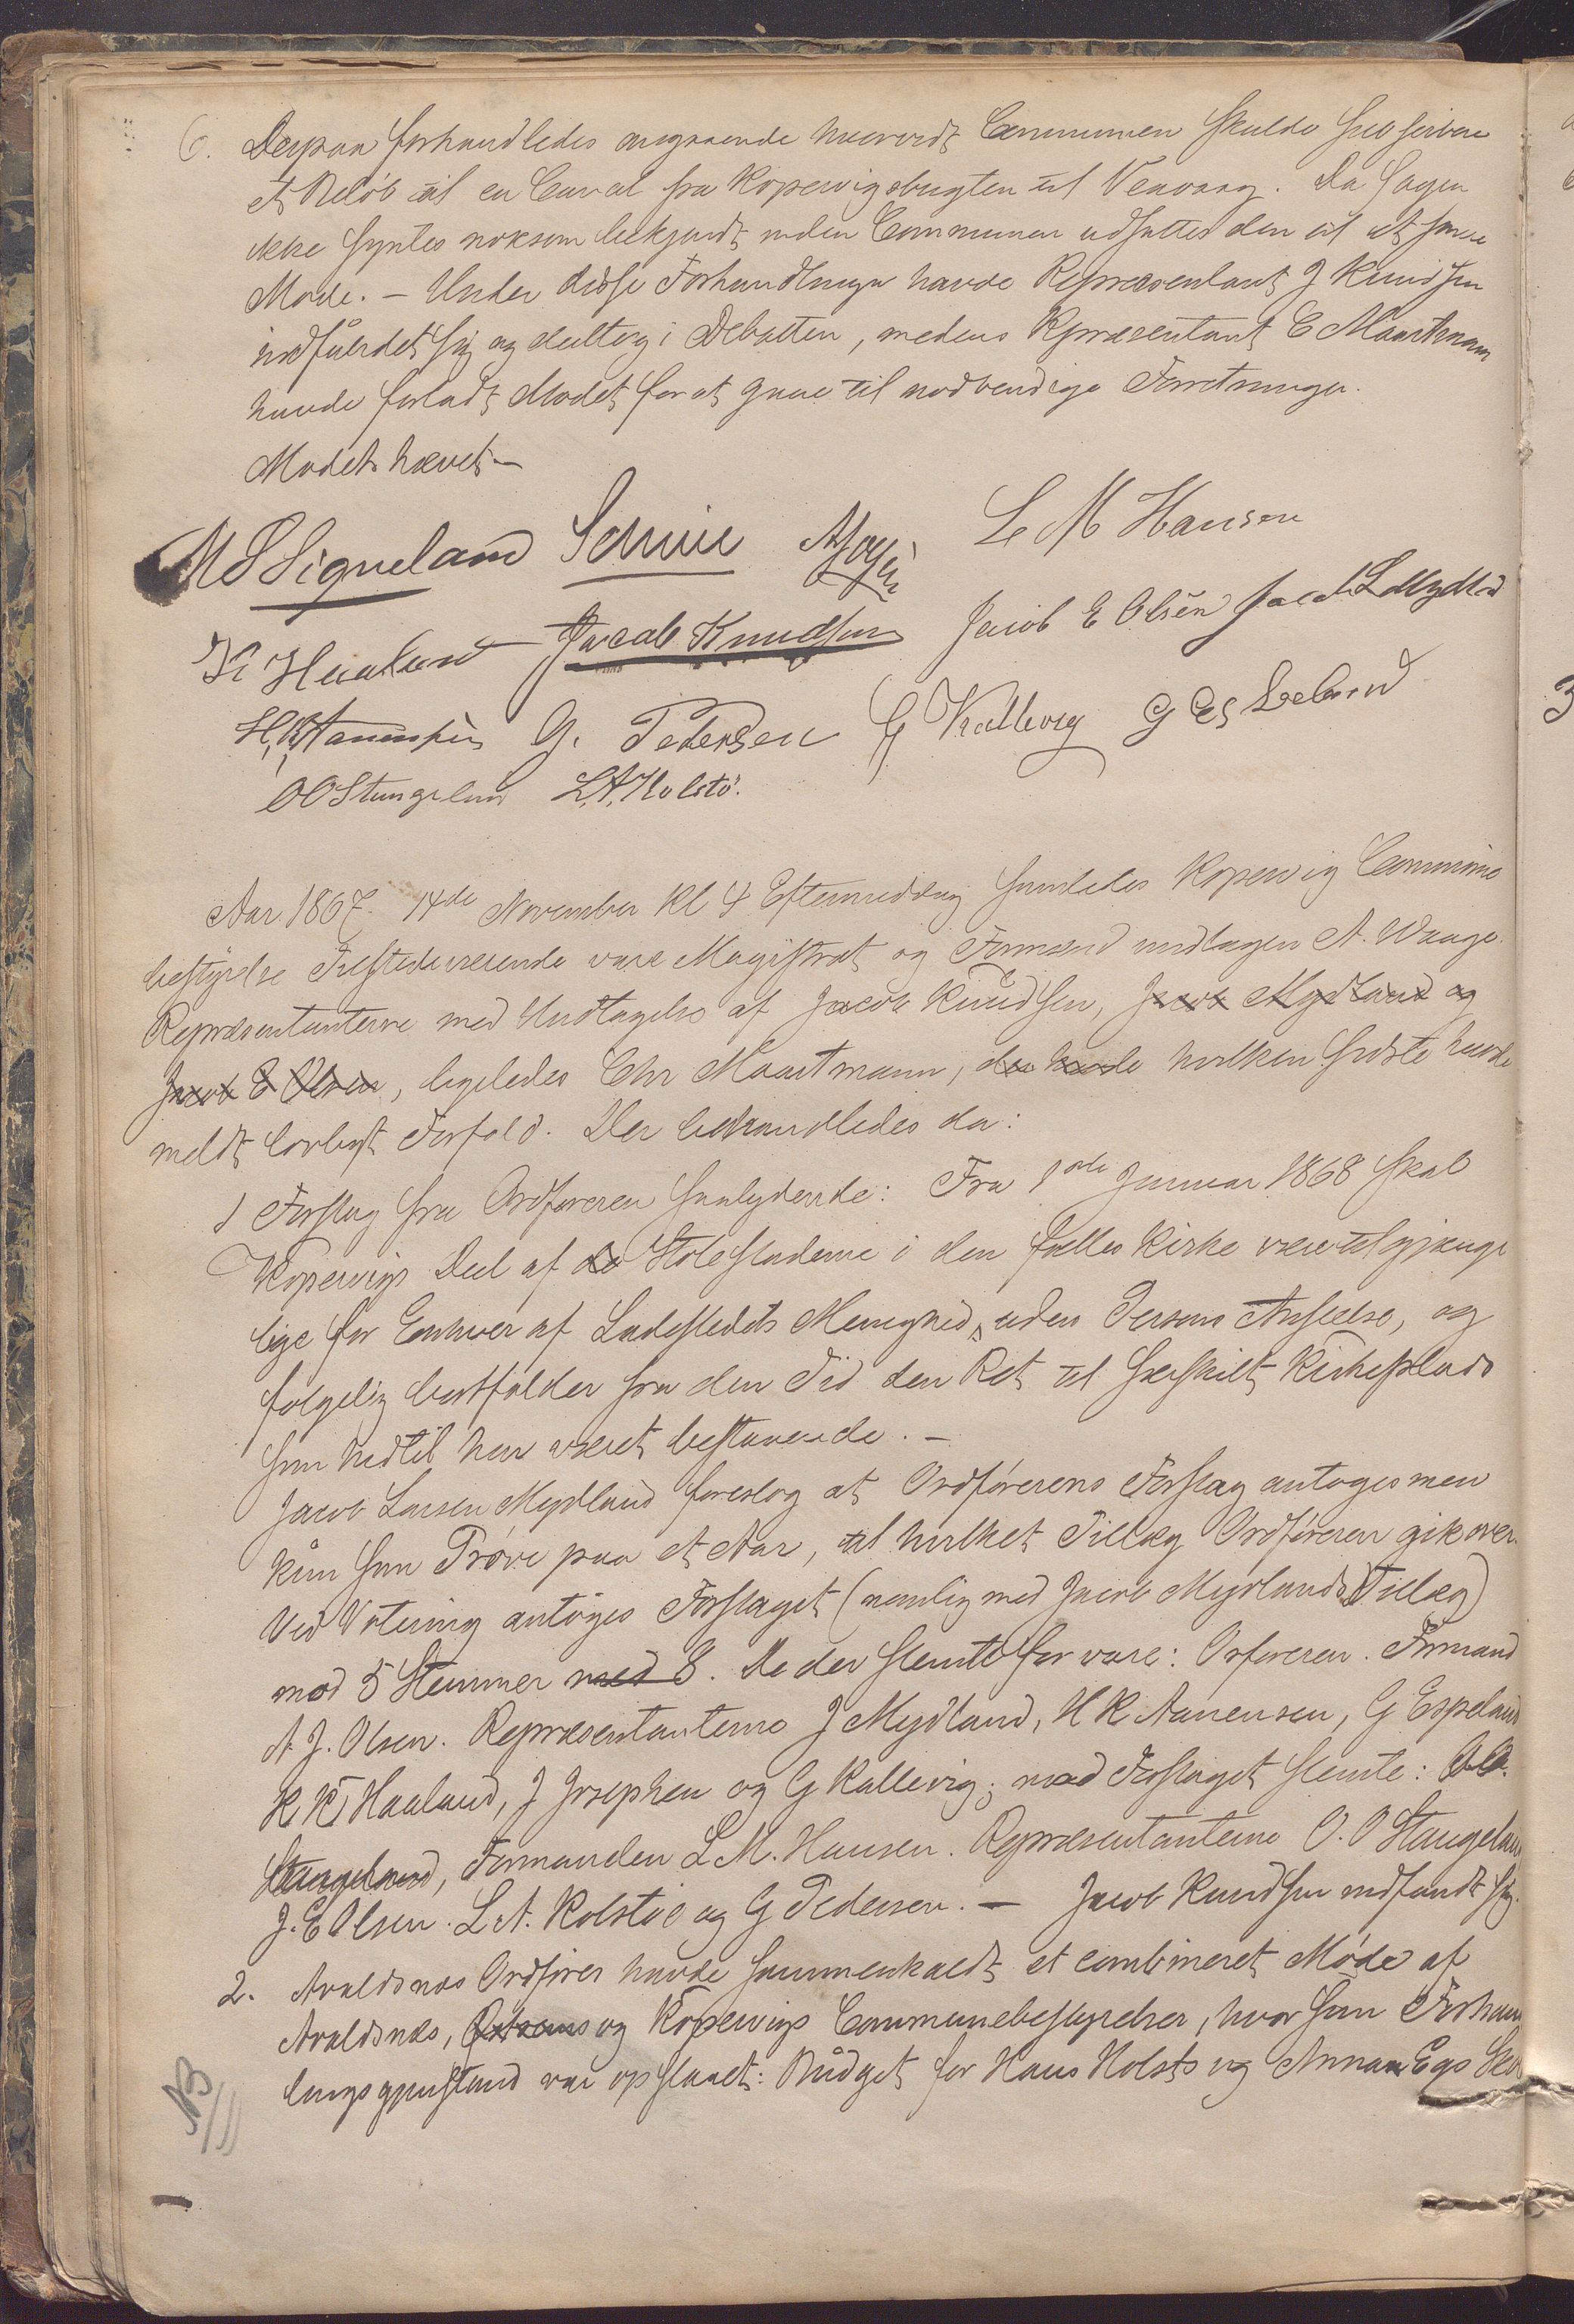 6. Derpaa forhandledes angaaende hvorvidt Communen skulde subskribere
et Beløb til en Canal fra Kopervigsbugten til Veavaag. Da Sagen
ikke syntes noksom bekjendt inden Communen udsattes den til et senere
Mode. – Under disse Forhandlinger havde Repræsentant J Knudsen
indfundet sig og deeltog i Debatten, medens Repræsentant C Maartmann
havde forladt Modet for at gaae til nodvendige Forretninger.
Modet hævet –
M S Liqueland L M Hansen
K Haaland Jacob Knudsen Jacob E Olsen Jacob L Mydland
H, K, Aanensen G. Pedersen G Kallevig G Espeland
O O Stangeland L. A. Kolstö.
Aar 1867. 14de November Kl 4 Eftermiddag samledes Kopervig Commune
bestyrelse Tilstedeværende vare Magistrat og Formænd undtagen A. Waage.
Repræsentanterne med Undtagelse af Jacob Knudsen, Jacob Mydland og
Jacob E Olsen, ligeledes Chr Maartmann, der havde hvilken sidste havde
meldt lovligt Forfald. Der behandledes da:
1 Forslag fra Ordføreren saalydende: Fra 1ste Januar 1868 skal
Kopervigs Deel af de Stolestaderne i den fælles Kirke være tilgjænge
lige for Enhver af Ladestedets Menighed, uden Persons Anseelse, og
folgelig bortfalder fra den Tid den Ret til særskilt Kirkeplads
som hidtil har været bestaaende. –
Jacob Larsen Mydland foreslog at Ordførerens Forslag antoges men
kun som Prøve paa et Aar, til hvilket Tillæg Ordføreren gik over.
Ved Votering antoges Forslaget (nemlig med Jacob Mydlands Tillæg)
mod 5 Stemmer med 8. De der stemte for vare: Orføreren. Formand
A. J. Olsen. Repræsentanterne J Mydland, H K Aanensen, G Espeland
K K Haaland, J Josephsen og G Kallevig; mod Forslaget stemte: O. O.
Stangeland, Formanden L M. Hansen. Repræsentanterne O. O Stangeland
J. E Olsen. L. A. Kolstöe og G Pedersen. – Jacob Knudsen indfandt sig.
2. Avaldsnæs Ordfører havde sammenkaldt et combineret Møde af
Avaldsnæs, og Kopervigs Communebestyrelser, hvor som Forhand
lingsgjenstand var opslaaet: Budget for Hans Holsts og Anna Egs Sko
NB